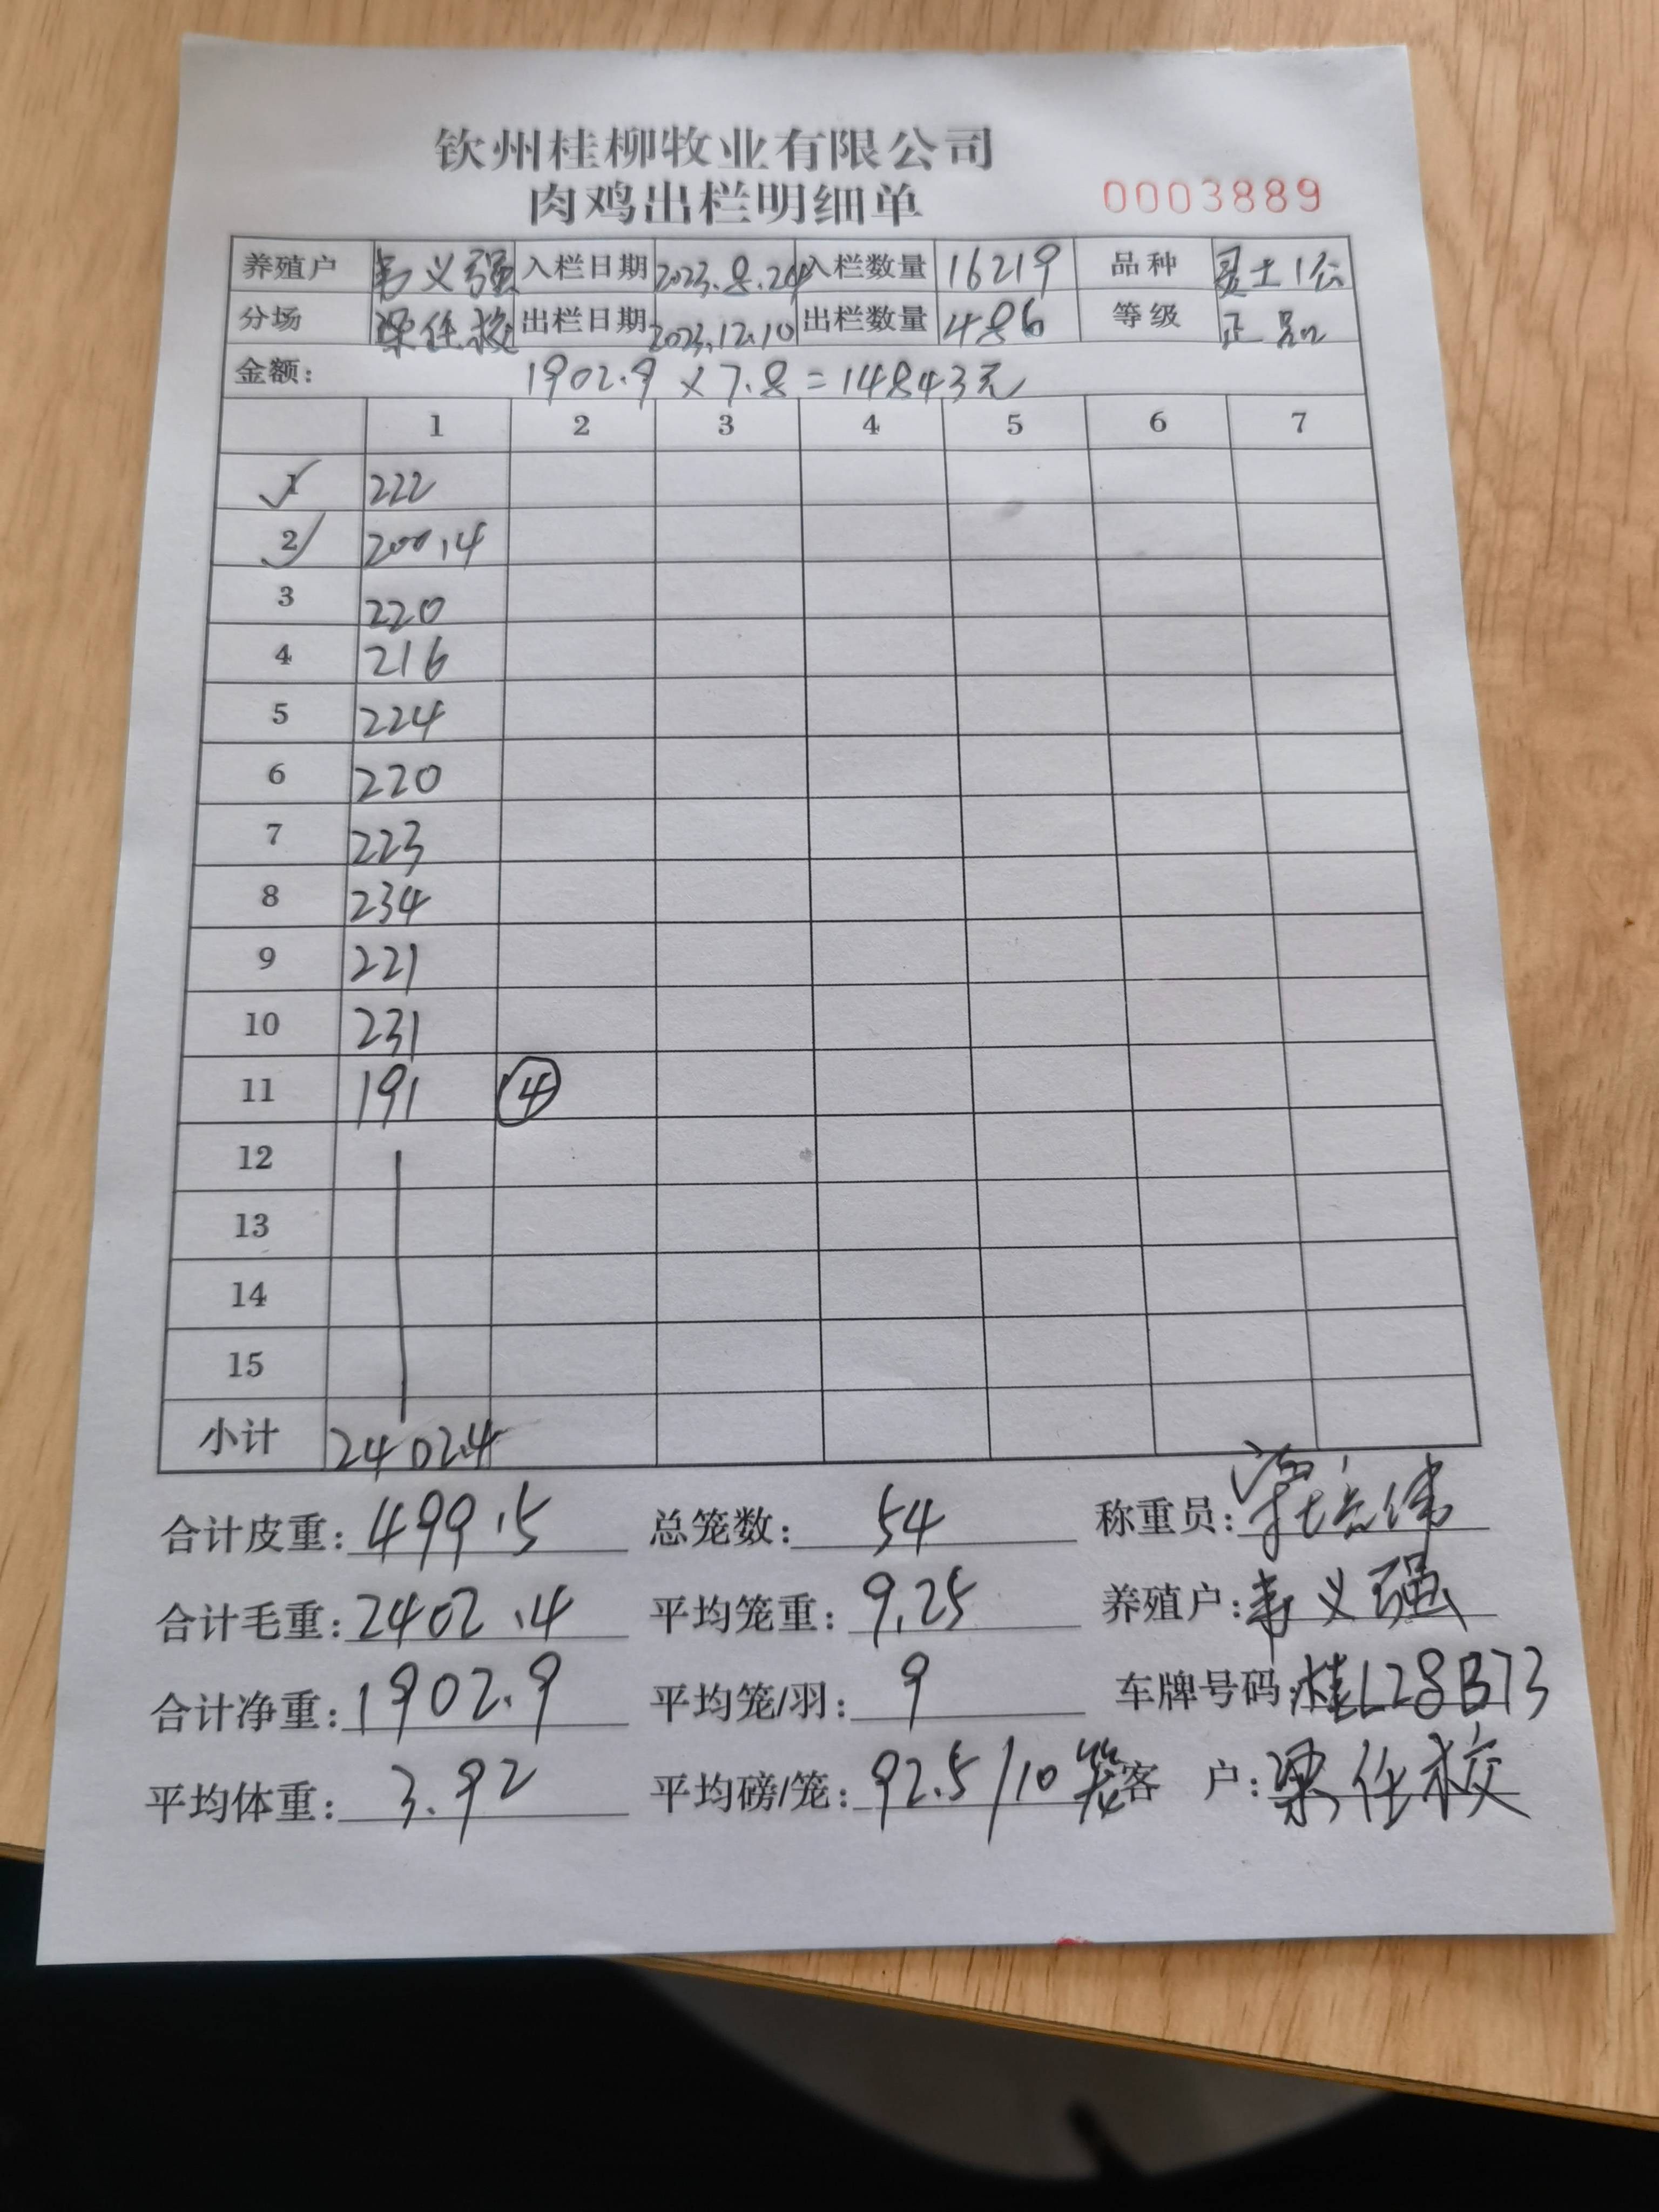 钦州桂柳牧业有限公司
肉鸡出栏明细单 0003889
养殖户 韦义强 入栏日期 2023.8.24 入栏数量 16219 品种 土1公
分场 梁任校 出栏日期 2023.12.10 出栏数量 486 等级 正品
金额: 1902.9 × 7.8 = 14843元
1 2 3 4 5 6 7
1 222
2 200.4
3 220
4 216
5 224
6 220
7 223
8 234
9 221
10 231
11 191 ④
12
13
14
15
小计 2402.4
合计皮重: 499.5 总笼数: 54 称重员:
合计毛重: 2402.4 平均笼重: 9.25 养殖户: 韦义强
合计净重: 1902.9 平均笼/羽: 9 车牌号码: 桂L28B73
平均体重: 3.92 平均磅/笼: 92.5/10笼 客 户: 梁任校